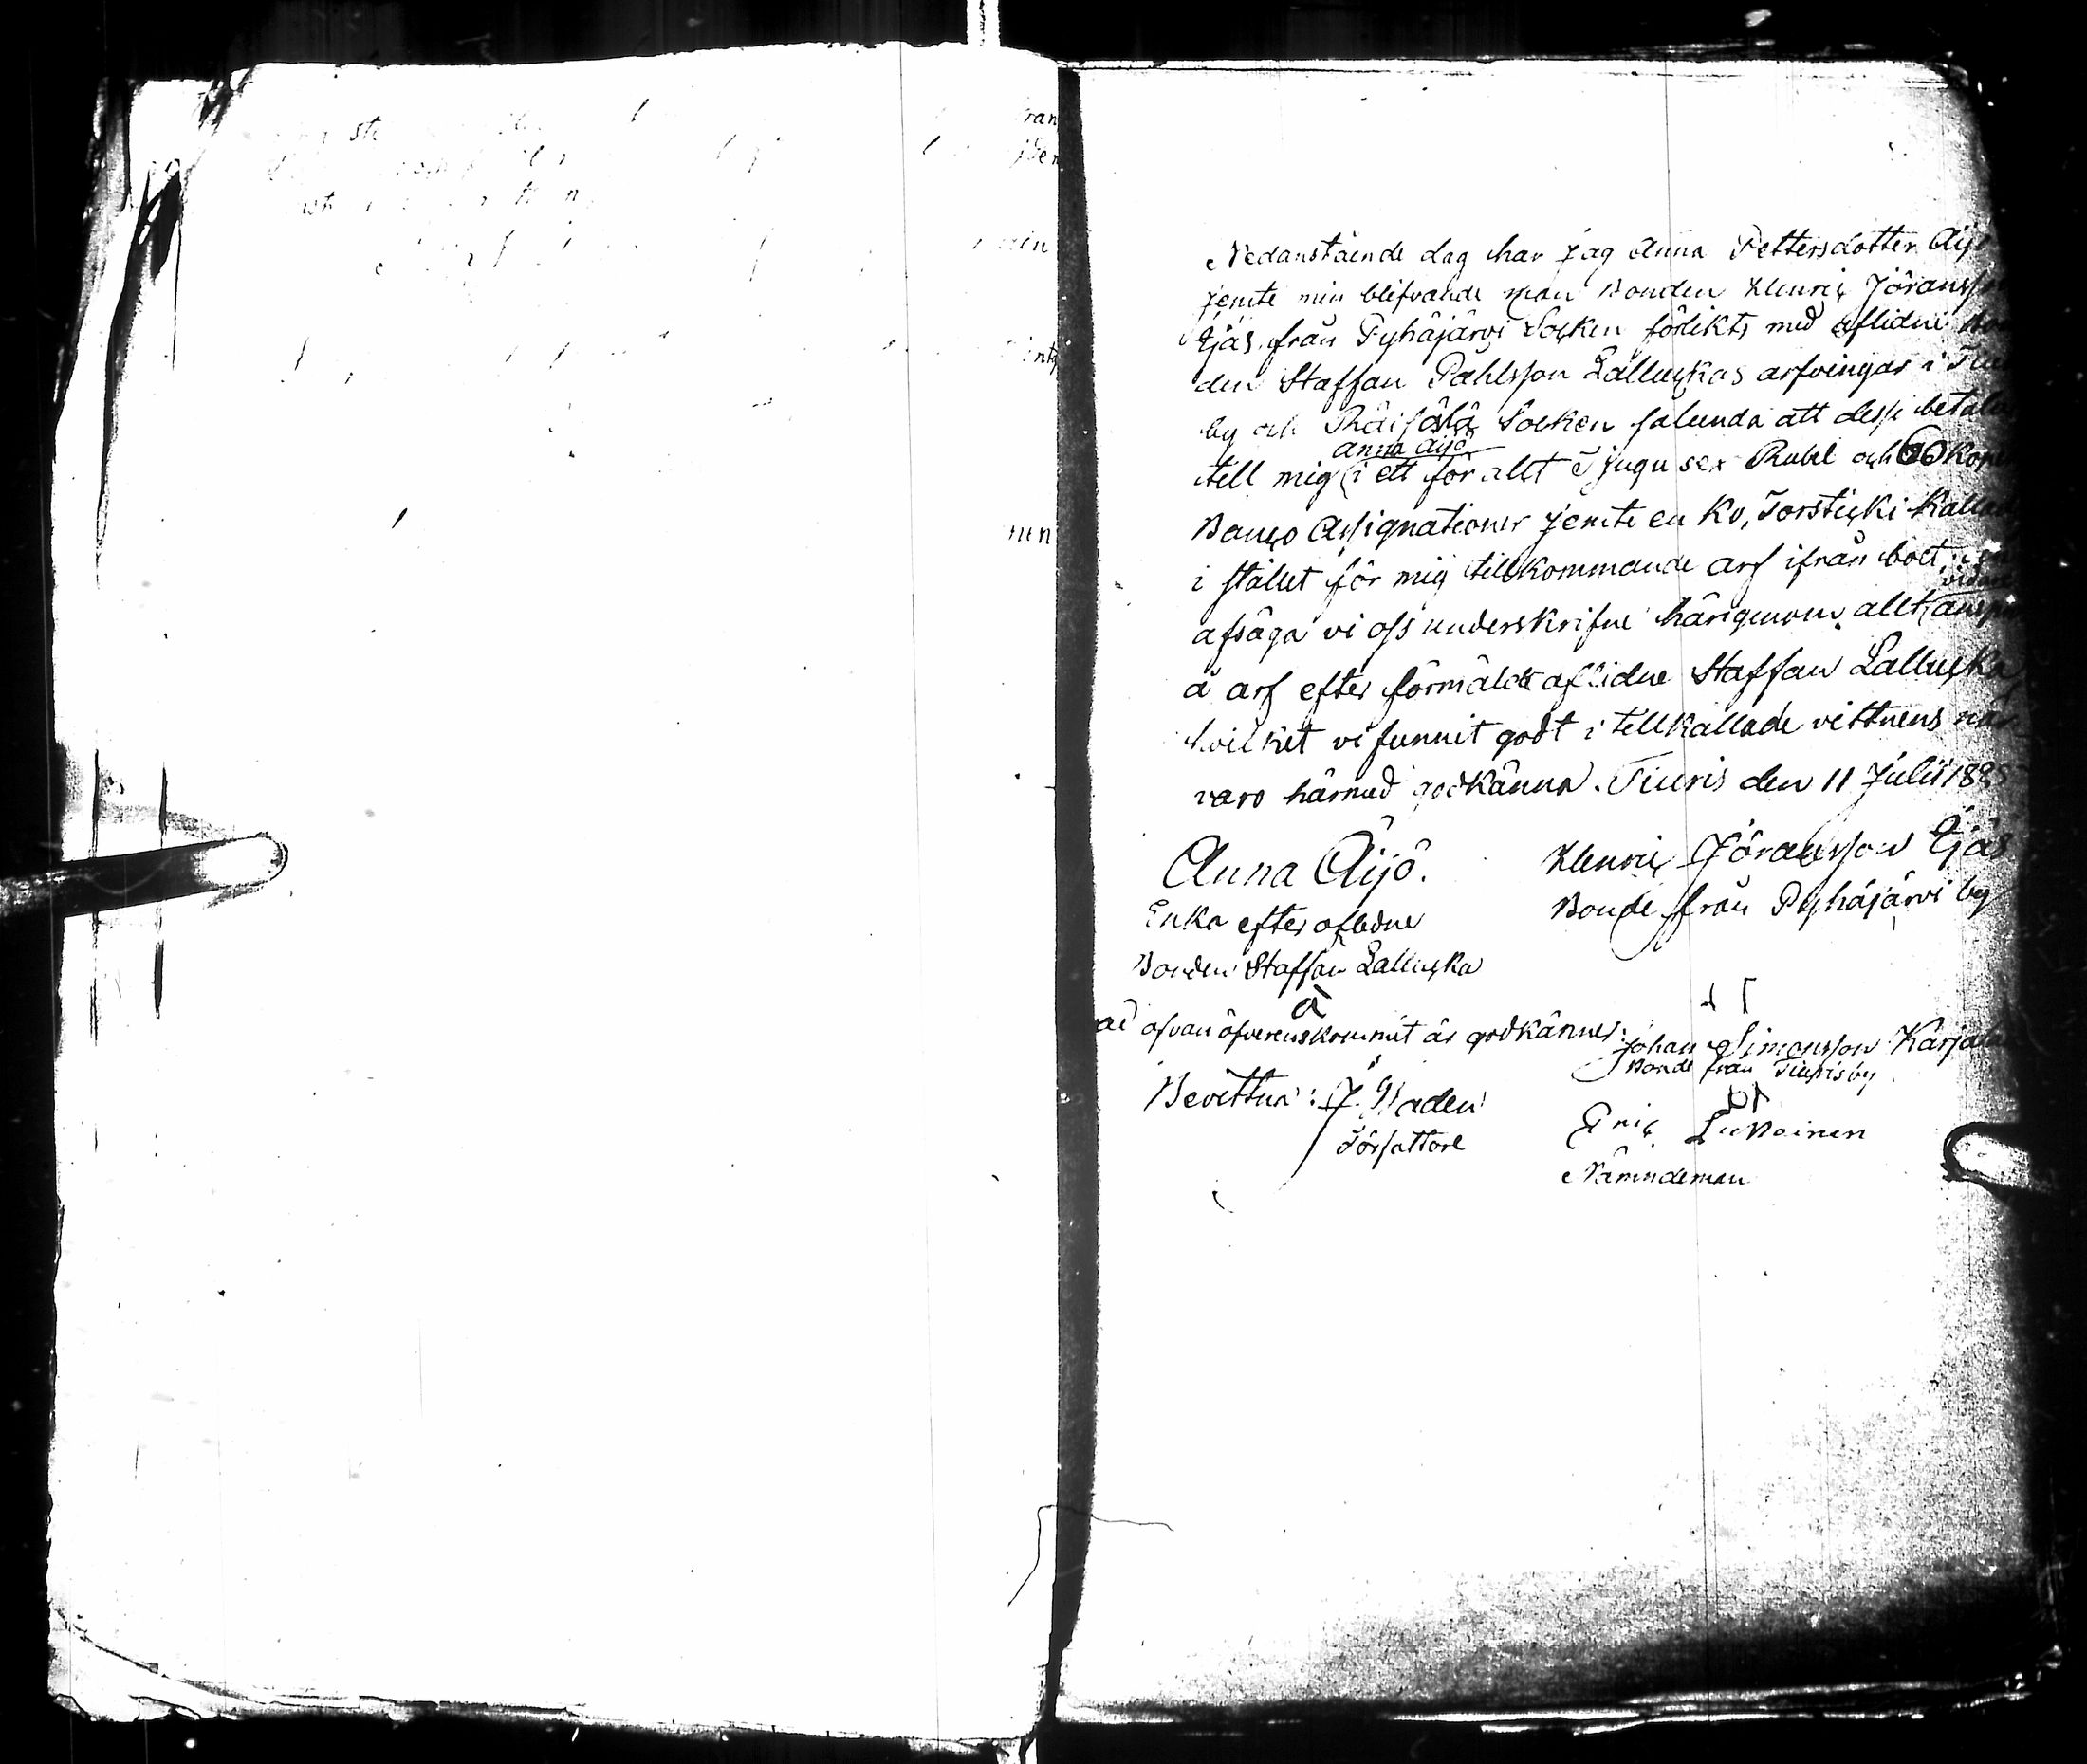 Nedanstående dag har jag Anna Pettersdotter Äijö
jemte min blifvande man Bonden Henric Jöransson
Ejäs från Pyhäjärvi Socken förlikts med aflidne Bon
den Staffan Påhlsson Lalluckas arfvingar i
by och Räisälä Socken salunda att desse betala
till mig Anna Äijö i ett för allt Tjugu sex Rubel och Kopek
Banco Assignationer jemte en ko, Torsticki kallad
i stället för mig tillkommande arf ifrån boet,
afsäga vi oss underskrifne härigenom allt vidare anspråk
å arf efter förmälde aflidne Staffan Lallucka
hvilket vi funnit godt i tillkallade vittnens när
varo härmed godkänna. Tiuris den 11 Julii
Anna Äijö.
Enka efter aflidne
Bonden Staffan Lallucka
Henric Jöransson Ejäs
Bonde från Pyhäjärvi by
ad ofvan öfverenskommit är godkännes:
Bevittna: J. Baden
Författare
Johan Simonsson Karjala
Bonde från Tiuris by
Eric Lukkainen
Nämndeman